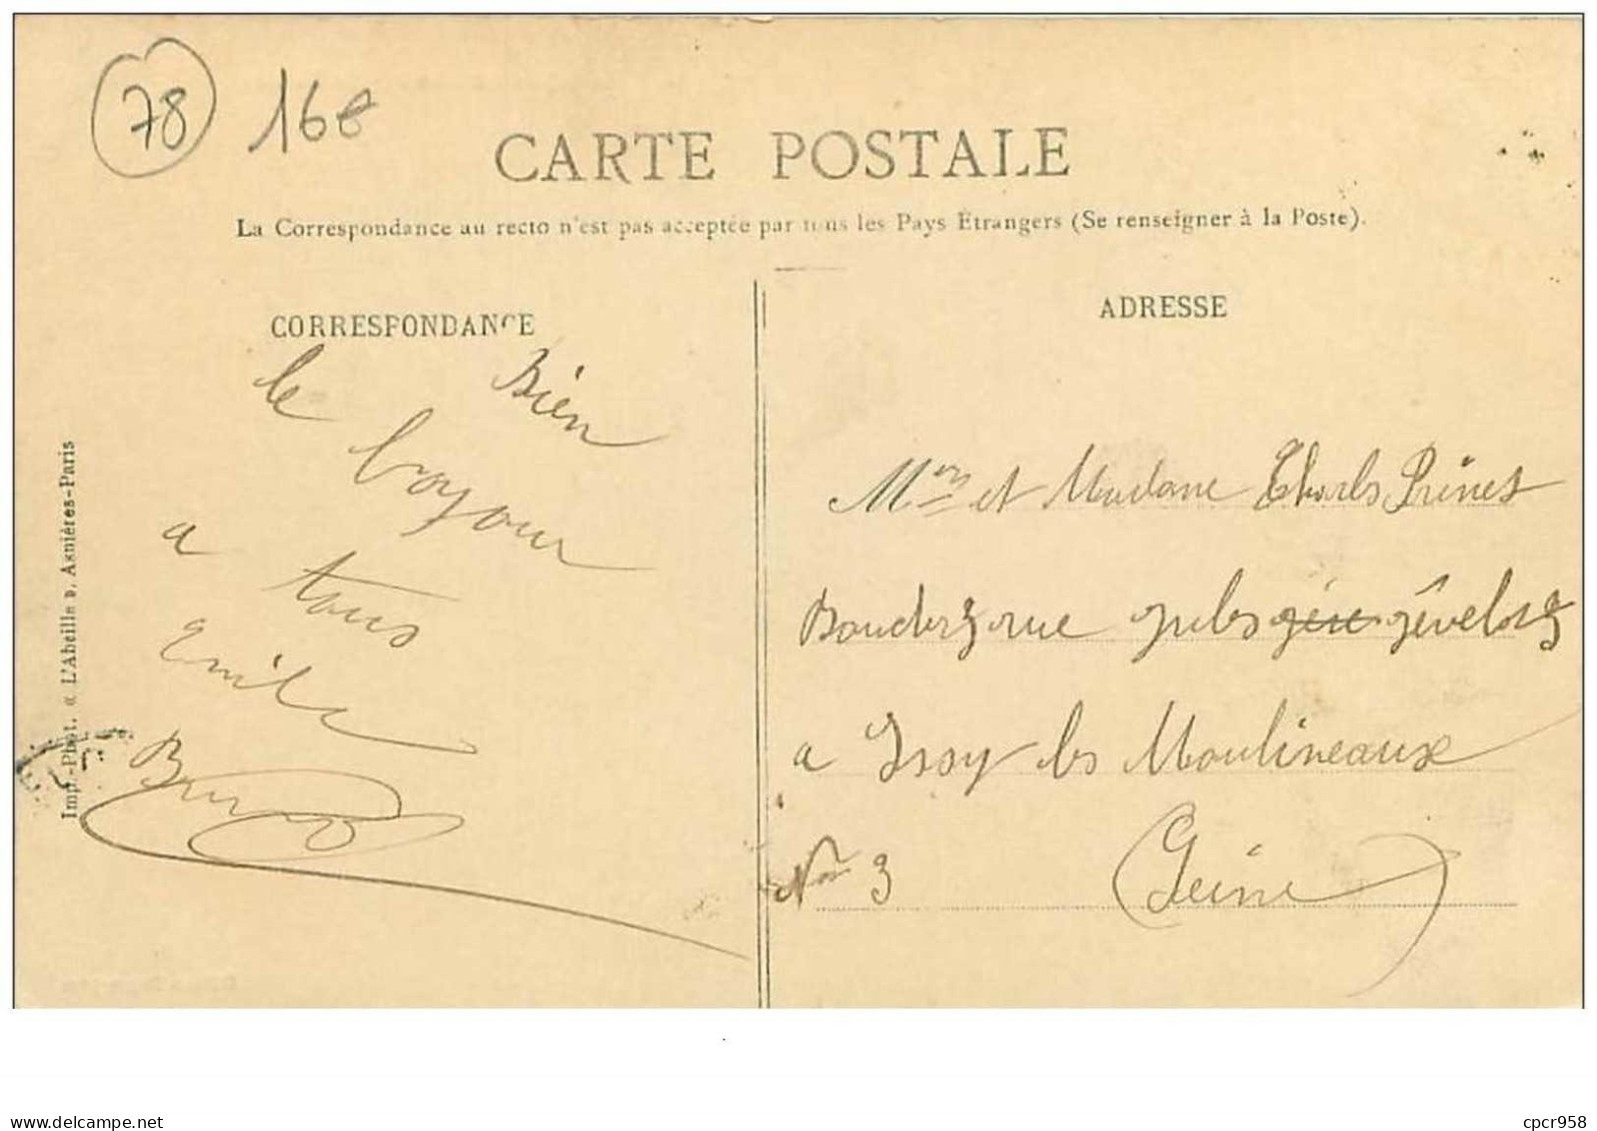 78 16e
CARTE POSTALE
La Correspondance au recto n'est pas acceptée par tous les Pays Étrangers (Se renseigner à la Poste).
CORRESPONDANCE
Bien
le boyour
a tous
Emile
Imp.-Phot. « L'Abeille », Asnières-Paris
ADRESSE
Mr et Madame Charls Prinet
rue Jules gévelot
a Issy les Moulineaux
No 3 (Seine)
delcampe.net
cpcr958